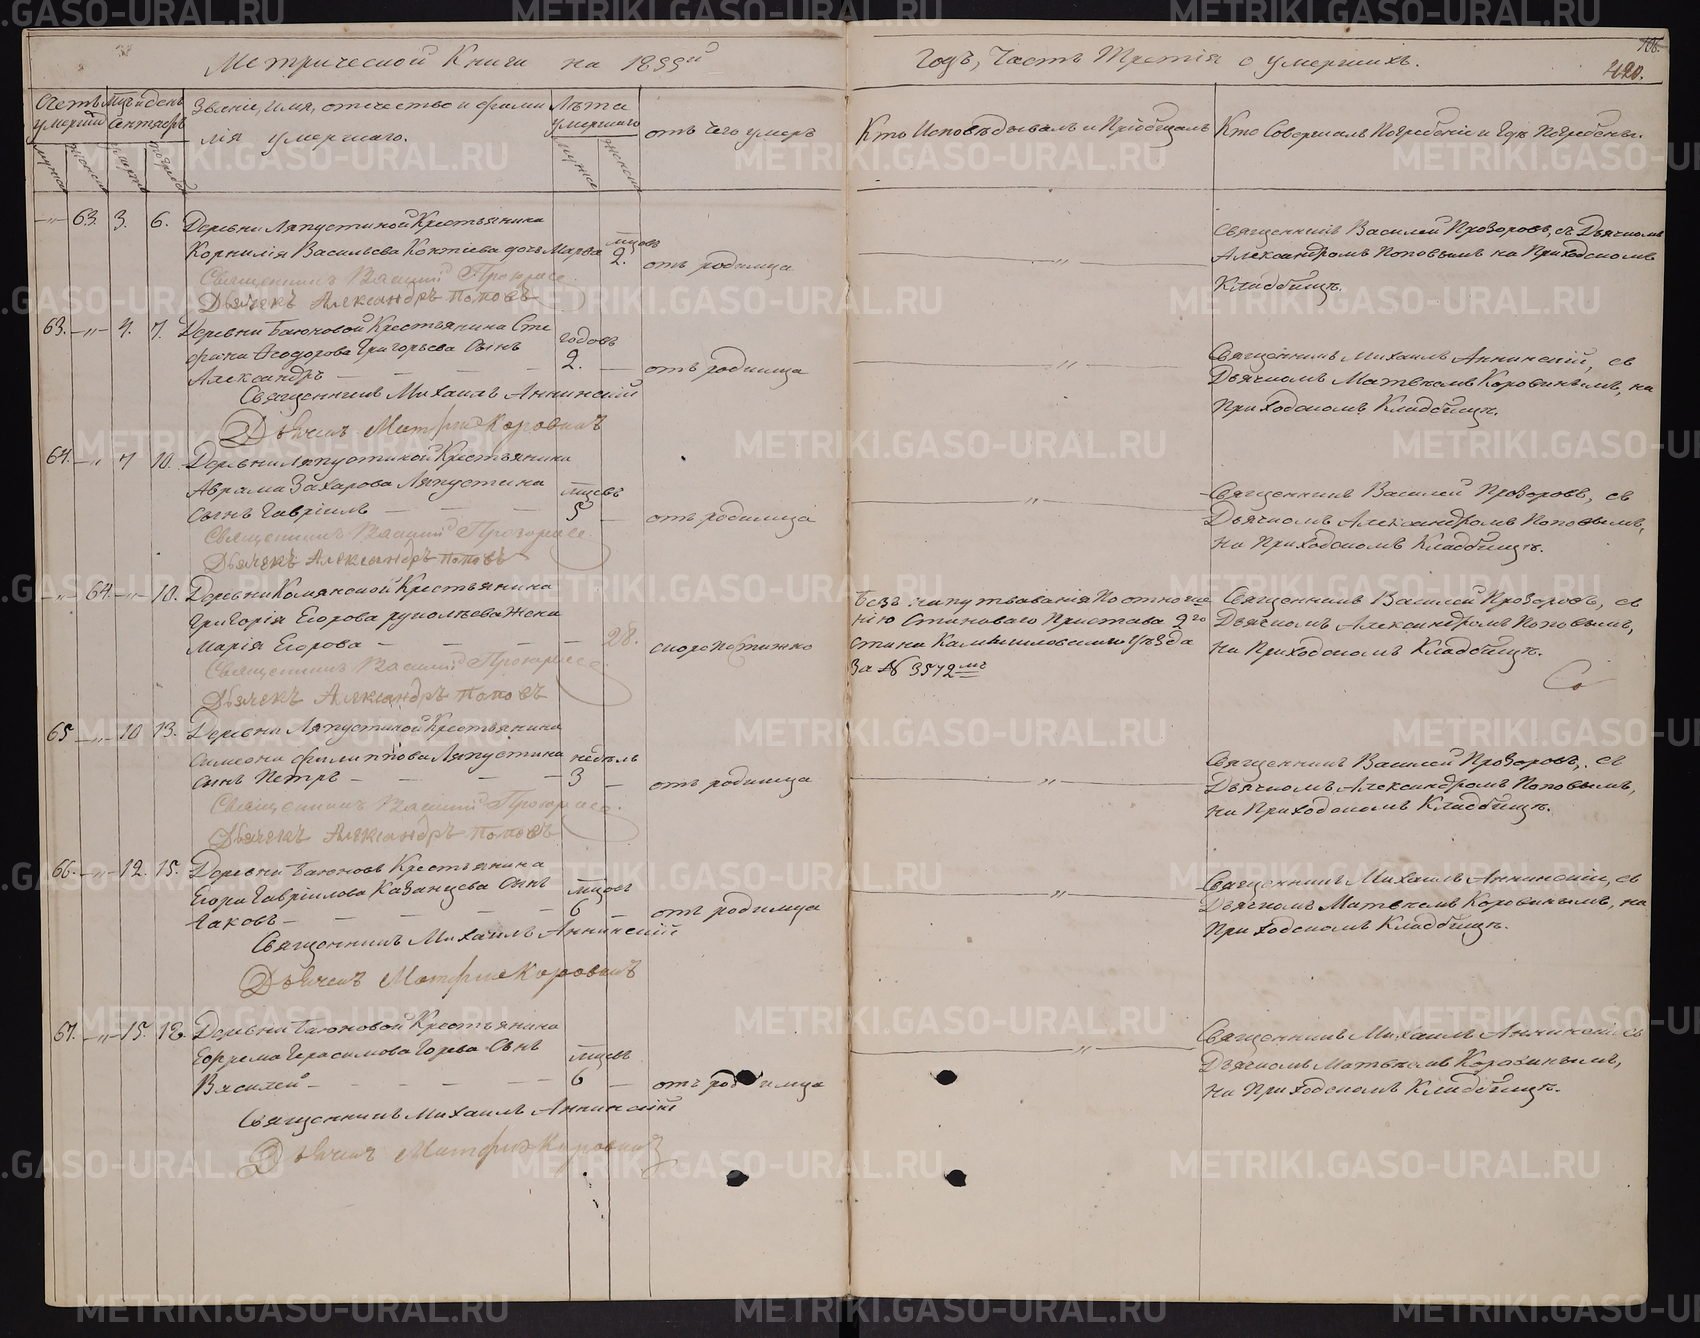 Метрической Книги на 1855й
годъ, Часть Третія о умершихъ.
420.
Счетъ умершихъ
Мць и день Сентябрь
Званіе, имя, отечество и фамилія умершаго.
Лѣта умершаго
отъ чего умеръ
Кто Исповѣдывалъ и Пріобщалъ
Кто Совершалъ Погребеніе и гдѣ Погребены.
63. 3. 6. Деревни Ляпустиной Крестьянина
Корнилія Васильева Коктiева дочь Марѳа
мцовъ
2.
отъ родимца
Священникъ Василій Прозоровъ, съ Дьячкомъ
Александромъ Поповымъ на Приходскомъ
Кладбищѣ.
Священникъ Василій
Дьячекъ Александръ Поповъ
63. 4. 7. Деревни Баюновой Крестьянина Сте
фана Ѳеодорова Григорьева Сынъ
Александръ
годовъ
2.
отъ родимца
Священникъ Михаилъ Аннинскій, съ
Дьячкомъ Матвеемъ Коровинымъ, на
Приходскомъ Кладбищѣ.
Священникъ Михаилъ Аннинскій
Дьячекъ Матфей Коровинъ
64. 7 10. Деревни Ляпустиной Крестьянина
Аврама Захарова Ляпустина
сынъ Гавріилъ
мцевъ
5
отъ родимца
Священникъ Василей Прозоровъ, съ
Дьячкомъ Александромъ Поповымъ,
на Приходскомъ Кладбищѣ.
Священникъ Василій
Дьячекъ Александръ Поповъ
64. 10. Деревни Крестьянина
Григорія Егорова Жена
Марія Егорова
28.
скоропостижно
Безъ напутвованія По отноше
нію Становаго Пристава 2го
стана Камышловскаго уѣзда
За № 3572мъ
Священникъ Василей Прозоровъ, съ
Дьячкомъ Александромъ Поповымъ,
на Приходскомъ Кладбищѣ.
Священникъ Василій
Дьячекъ Александръ Поповъ
65 10 13. Деревни Ляпустиной Крестьянина
Симеона Филиппова Ляпустина
сынъ Петръ
недѣль
3
отъ родимца
Священникъ Василей Прозоровъ, съ
Дьячкомъ Александромъ Поповымъ,
на Приходскомъ Кладбищѣ.
Священникъ Василій
Дьячекъ Александръ Поповъ
66. 12. 15. Деревни Баюновой Крестьянина
Егора Гавріилова Казанцева Сынъ
Іаковъ
мцовъ
6
отъ родимца
Священникъ Михаилъ Аннинскій, съ
Дьячкомъ Матвеемъ Коровинымъ, на
Приходскомъ Кладбищѣ.
Священникъ Михаилъ Аннинскій
Дьячекъ Матфей Коровинъ
67. 15. 18. Деревни Баюновой Крестьянина
Ефрема Герасимова Горева Сынъ
Василей
мцевъ
6
отъ родимца
Священникъ Михаилъ Аннинскій съ
Дьячкомъ Матвеемъ Коровинымъ,
на Приходскомъ Кладбищѣ.
Священникъ Михаилъ Аннинскій
Дьячекъ Матфей Коровинъ
METRIKI.GASO-URAL.RU